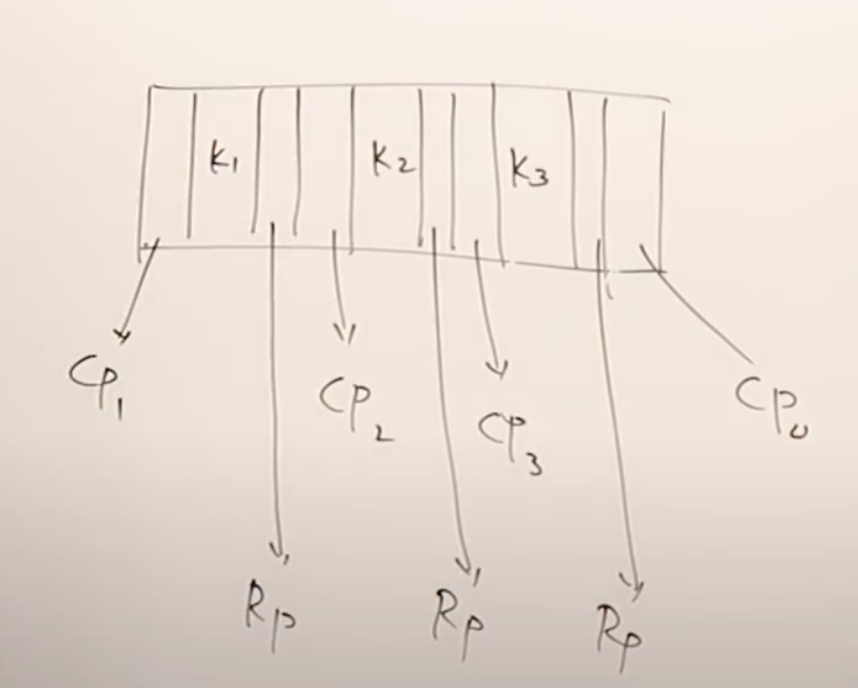 K₁ K₂ K₃
CP₁ CP₂ CP₃ CP₀
Rp Rp Rp